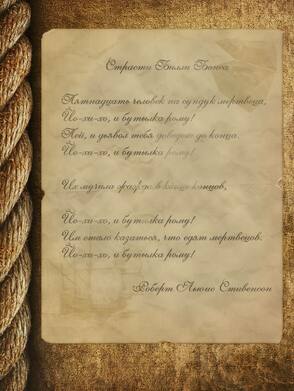 Страсти Билли Бонса
Пятнадцать человек на сундук мертвеца,
Йо-хо-хо, и бутылка рому!
Пей, и дьявол тебя доведет до конца.
Йо-хо-хо, и бутылка рому!
Их мучила жажда в конце концов,
Йо-хо-хо, и бутылка рому!
Им стало казаться, что едят мертвецов.
Йо-хо-хо, и бутылка рому!
Роберт Льюис Стивенсон